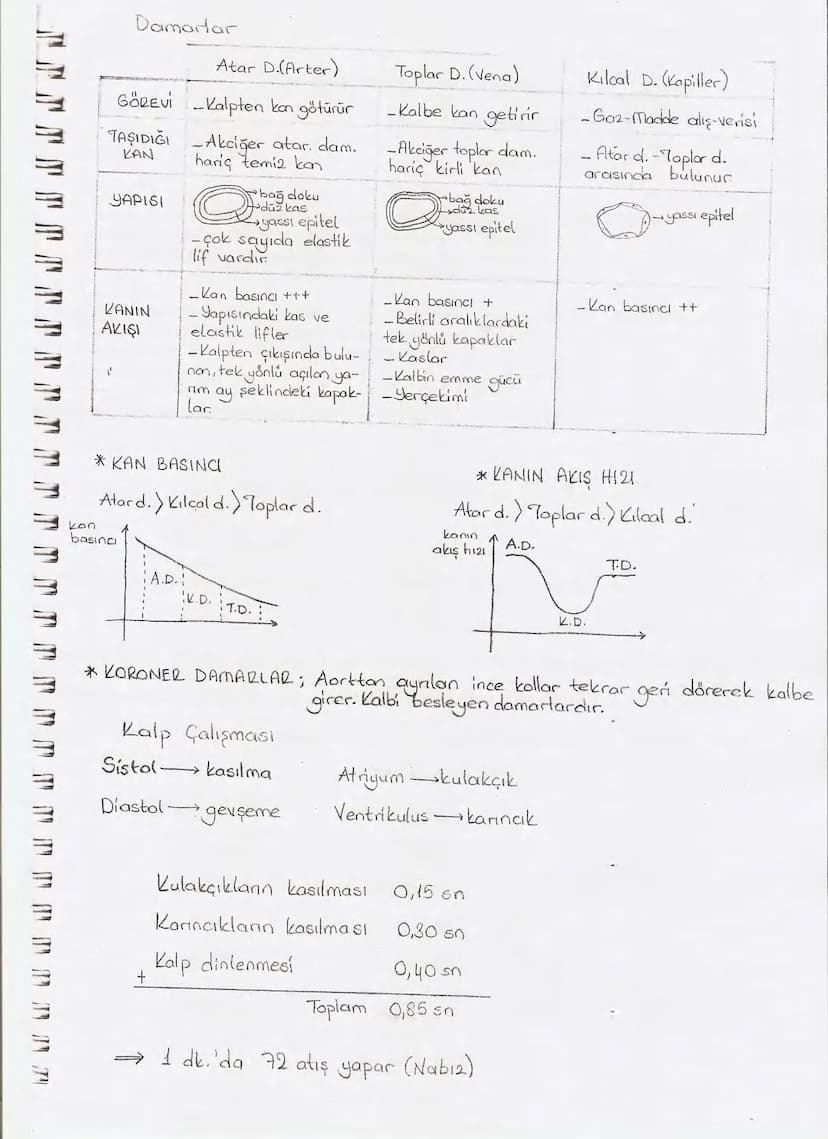 Damarlar
Atar D.(Arter)
Toplar D.(Vena)
Kılcal D.(Kapiller)
GÖREVİ
-Kalpten kan götürür
-Kalbe kan getirir
-Gaz-Madde alış-verisi
TAŞIDIĞI
KAN
-Akciğer atar. dam.
hariç temiz kan
-Akciğer toplar dam.
hariç kirli kan
- Atar d.-Toplar d.
arasında bulunur
YAPISI
bağ doku
düz kas
yassı epitel
-çok sayıda elastik
lif vardır.
bağ doku
düz kas
yassı epitel
yassı epitel
KANIN
AKIŞI
-Kan basıncı +++
-Yapısındaki kas ve
elastik lifler
-Kalpten çıkışında bulu-
nan, tek yönlü açılan ya-
rım ay şeklindeki kapak-
lar.
-Kan basıncı +
-Belirli aralıklardaki
tek yönlü kapaklar
-Kaslar
-Kalbin emme gücü
-Yerçekimi
-Kan basıncı ++
* KAN BASINCI
Atar d. > Kılcal d. > Toplar d.
kan
basıncı
A.D.
K.D.
T.D.
* KANIN AKIŞ HIZI
Atar d. > Toplar d. > Kılcal d.
kanın
akış hızı
A.D.
T.D.
K.D.
* KORONER DAMARLAR; Aorttan ayrılan ince kollar tekrar geri dönerek kalbe
girer. Kalbi besleyen damarlardır.
Kalp Çalışması
Sistol → kasılma
Atriyum → kulakçık
Diastol → gevşeme
Ventrikulus → karıncık
Kulakçıkların kasılması 0,15 sn
Karıncıkların kasılması 0,30 sn
+ Kalp dinlenmesi 0,40 sn
Toplam 0,85 sn
⇒ 1 dk.'da 72 atış yapar (Nabız)